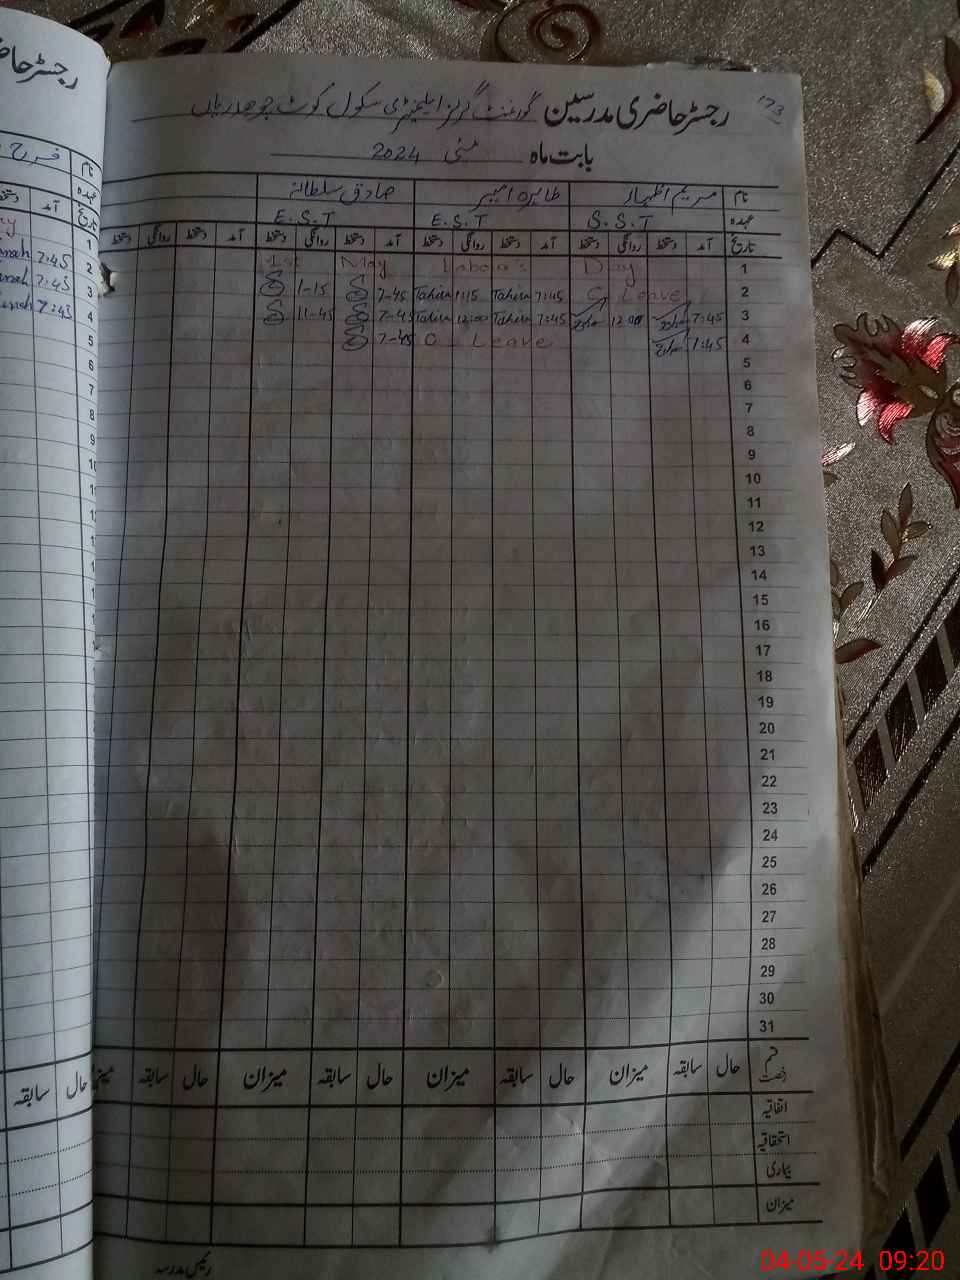 رجسٹر حاضری مدرسین گورنمنٹ گرلز ایلیمنٹری سکول کوٹ چوھدریاں 173
بابت ماہ مئی 2024
نام مریم اظہار طاہرہ صادق سلطانہ
عہدہ S.S.T E.S.T E.S.T
تاریخ آمد دستخط روانگی دستخط آمد دستخط روانگی دستخط آمد دستخط روانگی دستخط آمد دستخط روانگی دستخط
1 1st May Labour's Day
2 C Leave 7:45 Tahira 1:15 Tahira 7-45 1-15
3 7:45 12:00 7:45 Tahira 12:00 Tahira 7-45 11-45
4 7:45 C Leave 7-45
5
6
7
8
9
10
11
12
13
14
15
16
17
18
19
20
21
22
23
24
25
26
27
28
29
30
31
قسم رخصت حال سابقہ میزان حال سابقہ میزان حال سابقہ میزان حال سابقہ
اتفاقیہ
استحقاقیہ
بیماری
میزان
رئیس مدرسہ
رجسٹر
نام فرح
عہدہ
تاریخ آمد
1
2 7:45
3 7:45
4 7:45
5
6
7
8
9
حال سابقہ
04-05-24 09:20